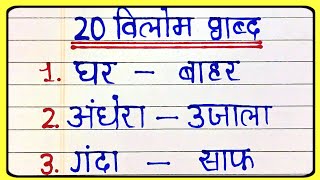 20 विलोम शब्द
1. घर – बाहर
2. अंधेरा – उजाला
3. गंदा – साफ